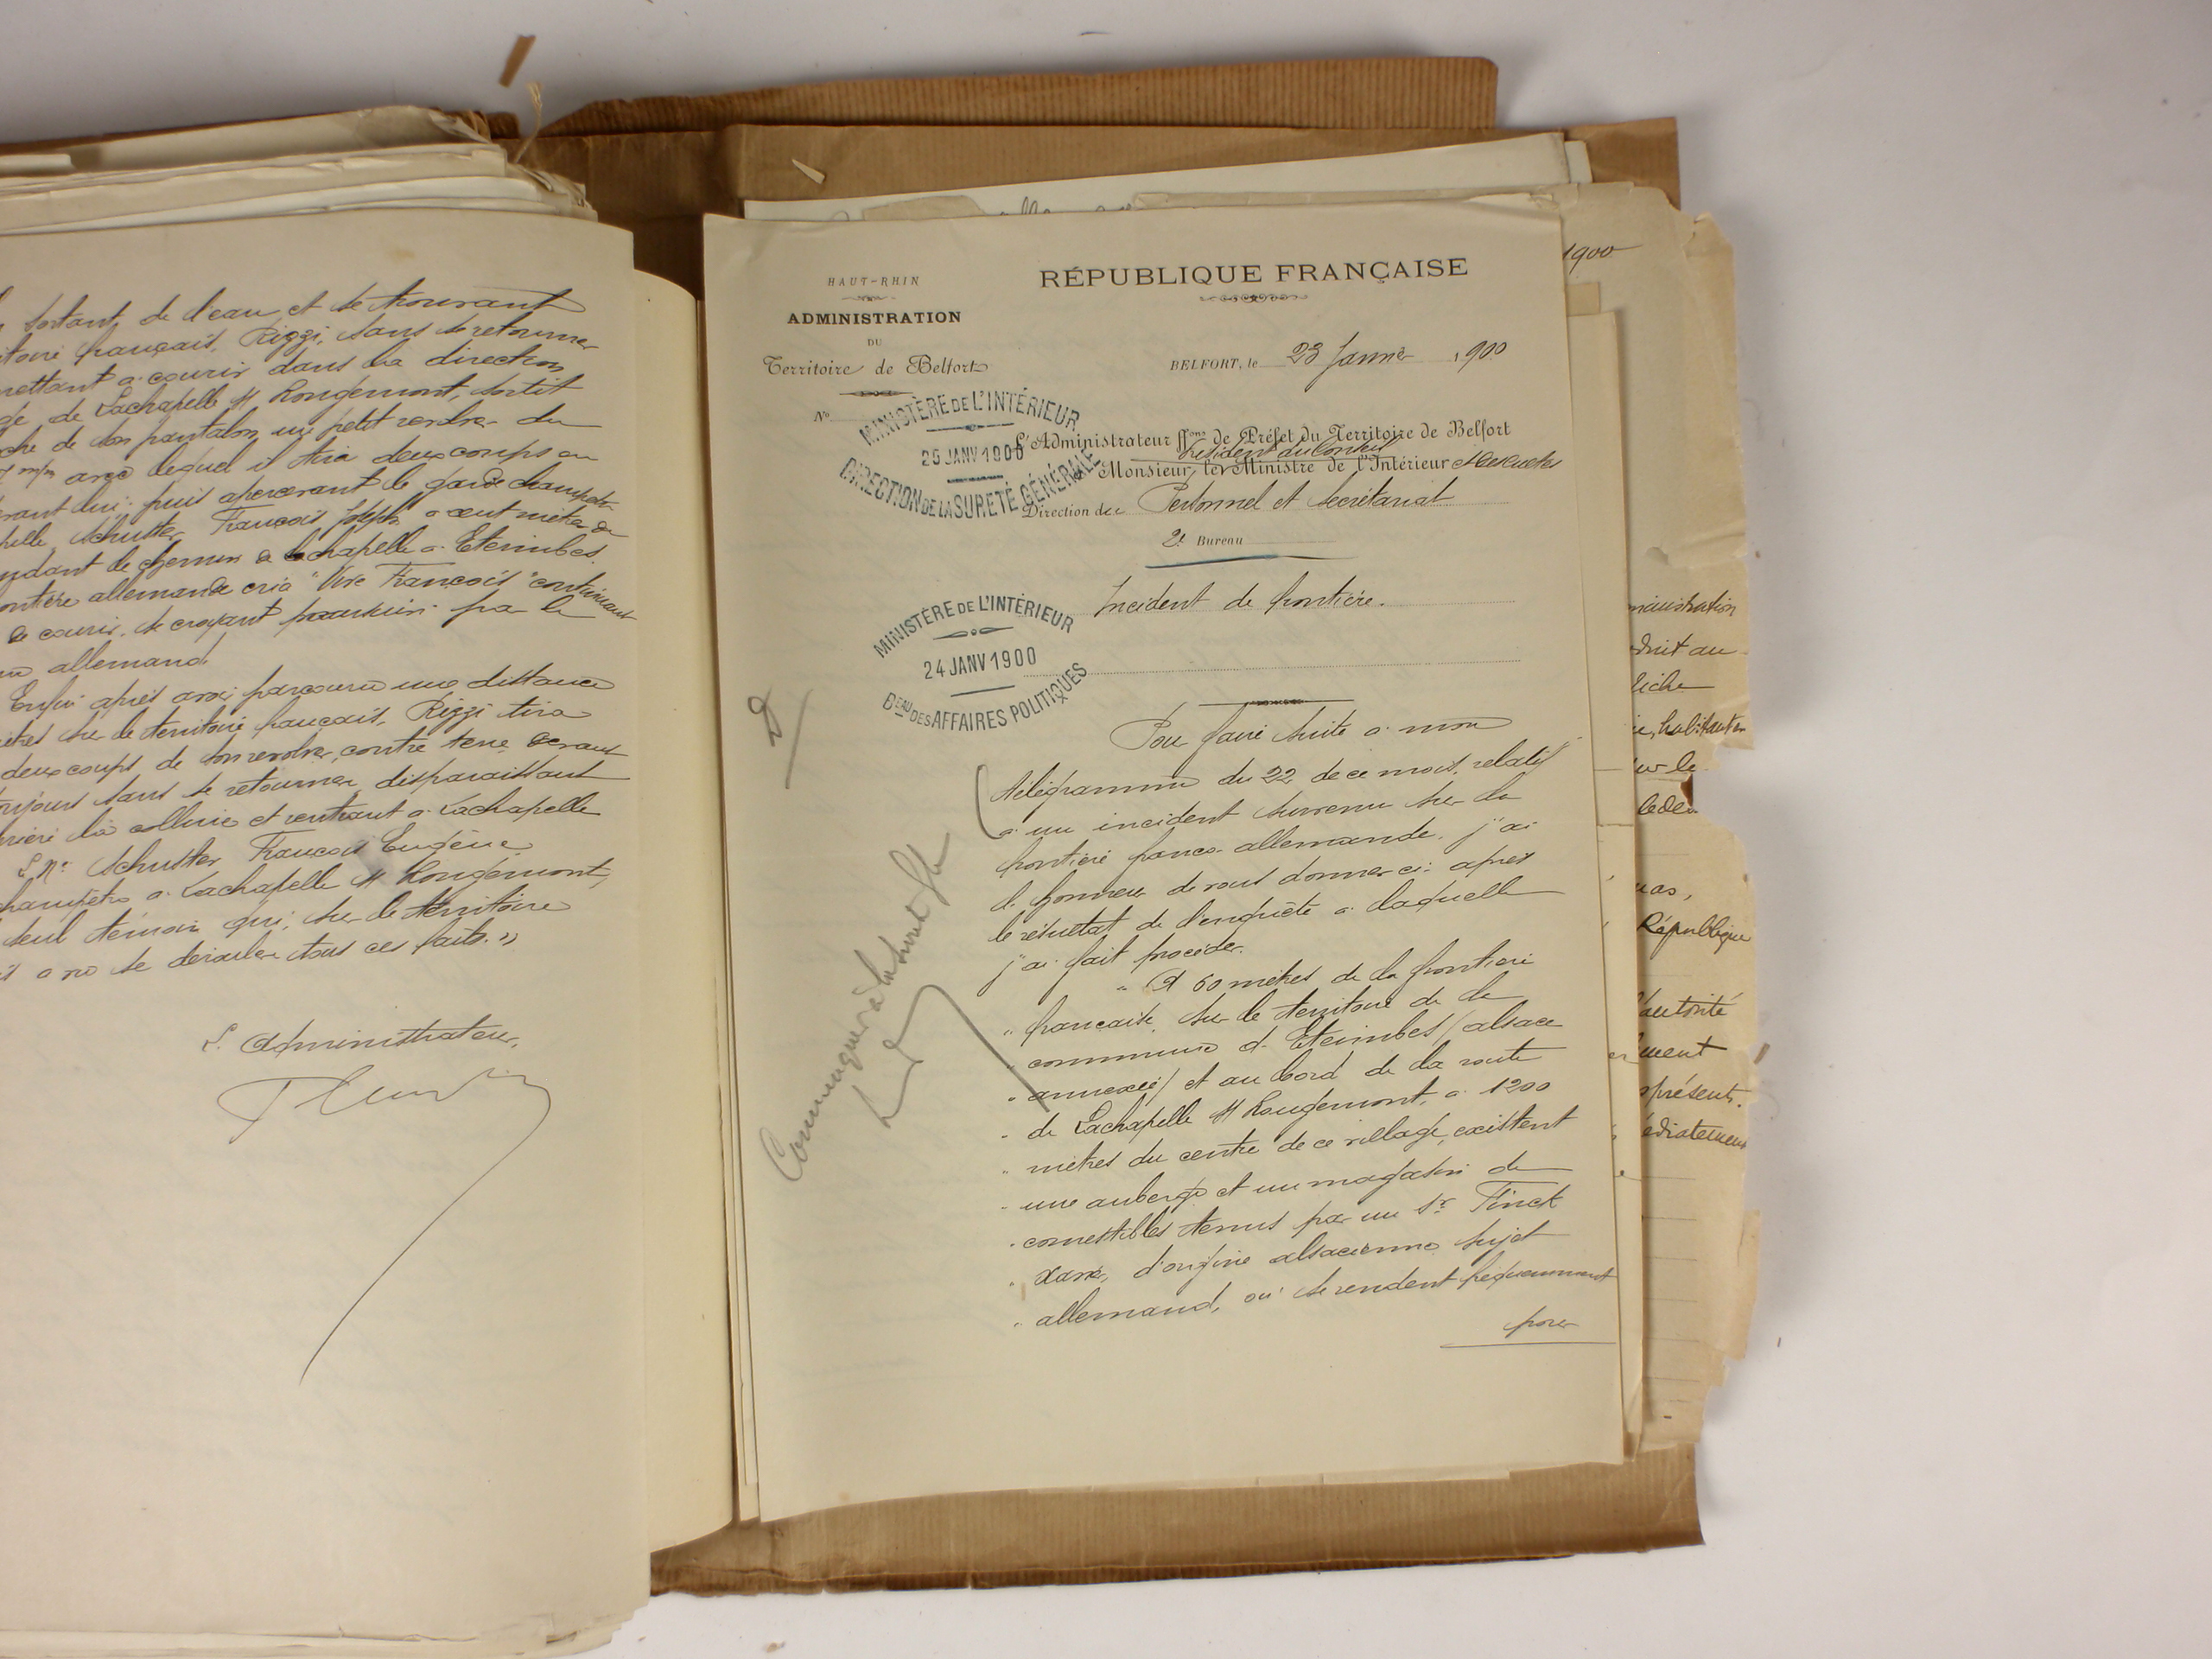 sortant de l'eau et se trouvant
français, Rizzi, sans se retourner
mettant à courir dans la direction
de Lachapelle s/s Rougemont, sortit
de son pantalon un petit revolver du
7 m/m avec lequel il tira deux coups en
devant lui; puis apercevant le garde champêtre
Schuster François Joseph à cent mètres
le chemin de Lachapelle à Eteimbes.
allemande cria "Vive François" continuant
de courir, se croyant poursuivi par le
allemand.
Enfin après avoir parcouru une distance
sur le territoire français, Rizzi tira
deux coups de son revolver, contre terre, devant
toujours sans se retourner, disparaissant
la colline et rentrant à Lachapelle
Le Sr Schuster François Eugène
à Lachapelle s/s Rougemont,
seul témoin qui, sur le territoire
a vu se dérouler tous ces faits. »
L'Administrateur,
HAUT-RHIN
ADMINISTRATION
DU
Territoire de Belfort
No
RÉPUBLIQUE FRANÇAISE
BELFORT, le 23 Janvier 1900
MINISTÈRE DE L'INTÉRIEUR
25 JANV 1900
DIRECTION DE LA SURETÉ GÉNÉRALE
L'Administrateur ffons de Préfet du Territoire de Belfort
Président du Conseil
Monsieur le Ministre de l'Intérieur et des Cultes
Direction du Personnel et Secrétariat
2e Bureau
Incident de frontière.
MINISTÈRE DE L'INTÉRIEUR
24 JANV 1900
BEAU DES AFFAIRES POLITIQUES
Communiquer à la Sureté Gle
Pour faire suite à mon
télégramme du 22 de ce mois, relatif
à un incident survenu sur la
frontière franco-allemande, j'ai
l'honneur de vous donner ci-après
le résultat de l'enquête à laquelle
j'ai fait procéder.
" A 60 mètres de la frontière
" française, sur le territoire de la
" commune d'Eteimbes (alsace
" annexée) et au bord de la route
" de Lachapelle s/s Rougemont, à 1200
" mètres du centre de ce village, existent
" une auberge et un magasin de
" comestibles tenus par un Sr Finck
" Xavier, d'origine alsacienne sujet
" allemand, où se rendent fréquemment
pour
1900
droit au
habitant
sur le
République
l'autorité